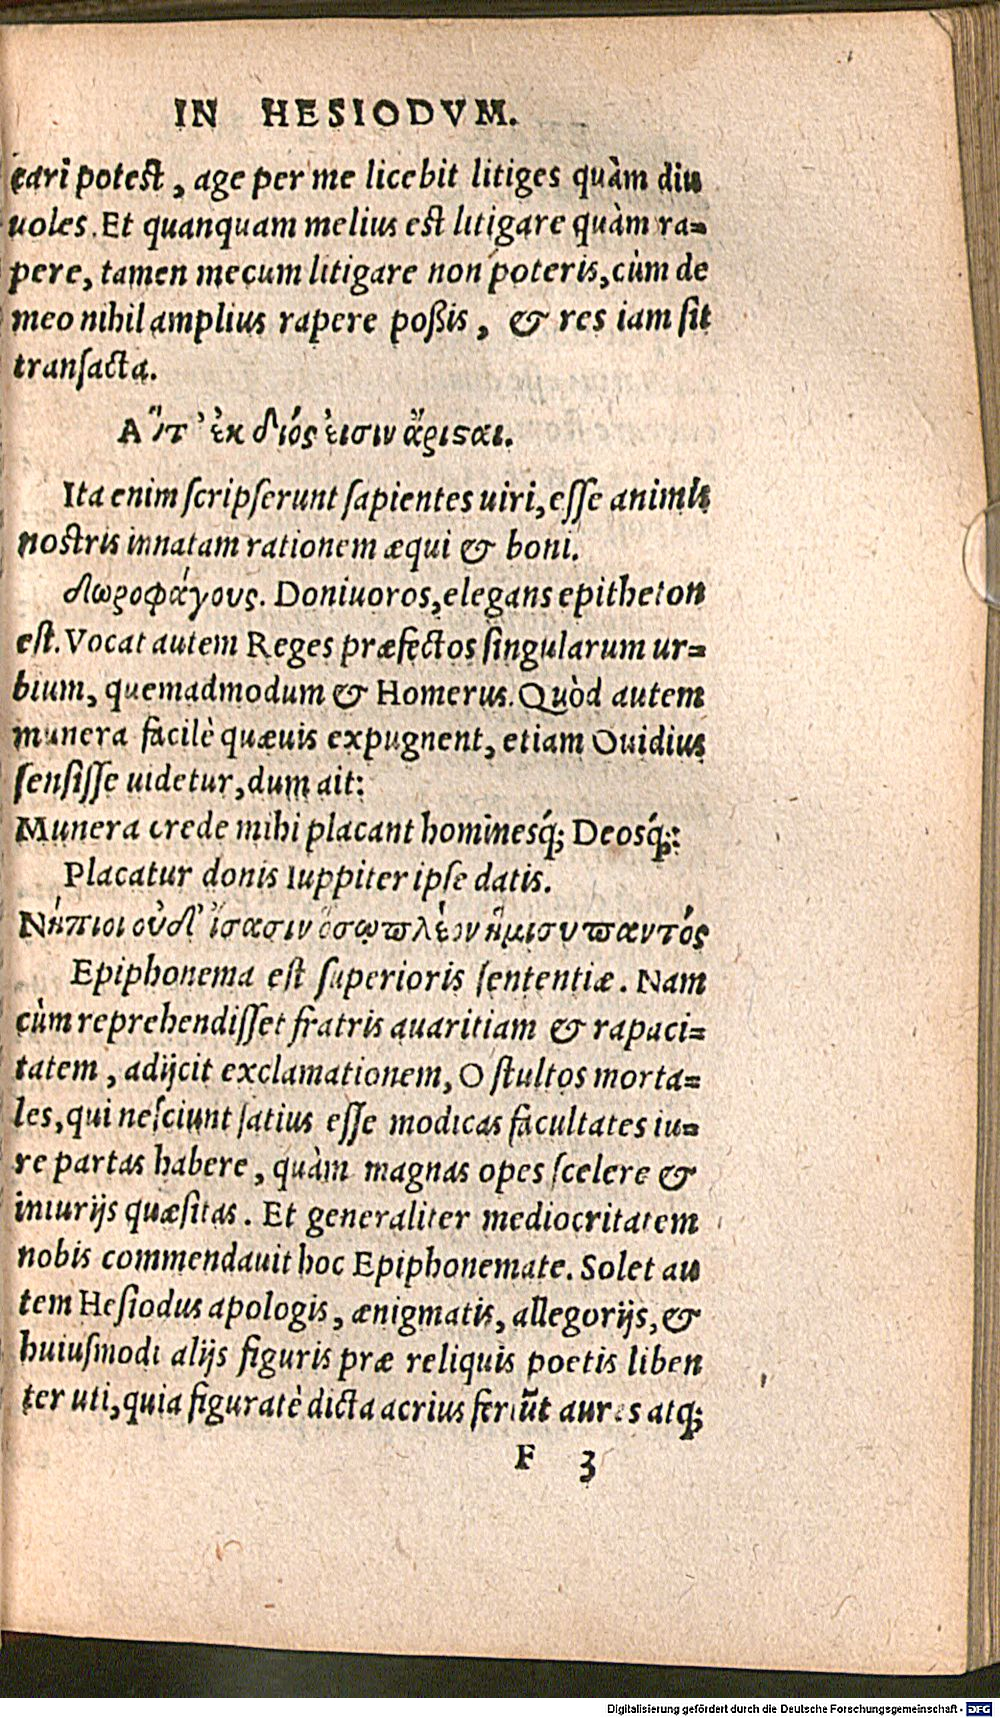 IN HESIODVM.
cari potest, age per me licebit litiges quàm diu
uoles. Et quanquam melius est litigare quàm ra=
pere, tamen mecum litigare non poteris, cùm de
meo nihil amplius rapere poßis, & res iam sit
transacta.
Αἵτ' ἐκ διός εἰσιν ἄρισαι.
Ita enim scripserunt sapientes uiri, esse animis
nostris innatam rationem æqui & boni.
δωροφάγους. Doniuoros, elegans epitheton
est. Vocat autem Reges præfectos singularum ur=
bium, quemadmodum & Homerus. Quòd autem
munera facilè quæuis expugnent, etiam Ouidius
sensisse uidetur, dum ait:
Munera crede mihi placant hominesq́; Deosq́;:
Placatur donis Iuppiter ipse datis.
Νήπιοι οὐδ' ἴσασιν ὅσῳ πλέον ἥμισυ παντός
Epiphonema est superioris sententiæ. Nam
cùm reprehendisset fratris auaritiam & rapaci=
tatem, adijcit exclamationem, O stultos morta=
les, qui nesciunt satius esse modicas facultates iu=
re partas habere, quàm magnas opes scelere &
iniurijs quæsitas. Et generaliter mediocritatem
nobis commendauit hoc Epiphonemate. Solet au
tem Hesiodus apologis, ænigmatis, allegorijs, &
huiusmodi alijs figuris præ reliquis poetis liben
ter uti, quia figuratè dicta acrius feriūt aures atq;
F 3
Digitalisierung gefördert durch die Deutsche Forschungsgemeinschaft - DFG